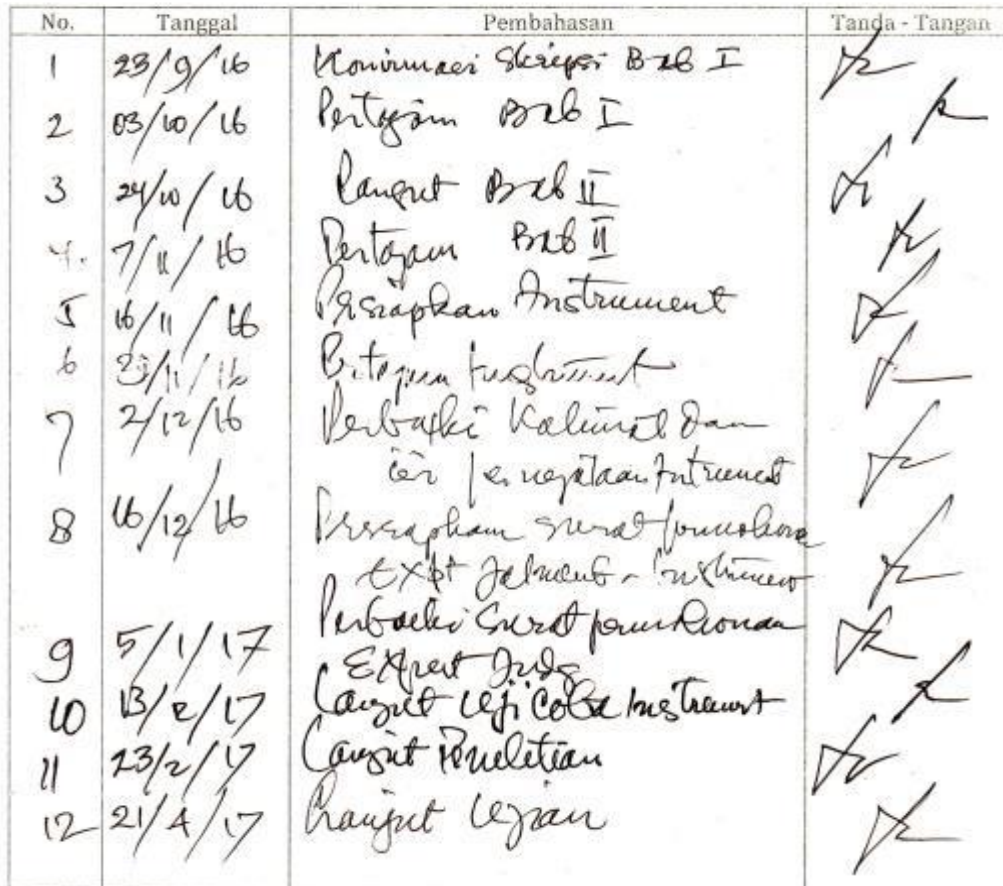 No. Tanggal Pembahasan Tanda - Tangan
1 23/9/16 Skripsi Bab I
2 03/10/16 Pertajam Bab I
3 24/10/16 Lanjut Bab II
4. 7/11/16 Pertajam Bab II
5 16/11/16 Persiapkan Instrument
6 /11/16 Instrument
7 2/12/16 Perbaiki Kalimat Dan
Instrument
8 16/12/16 Persiapkan surat
Instrument
Perbaiki Surat permohonan
9 5/1/17 Expert Judg
10 13/2/17 Lanjut Uji Coba Instrument
11 23/2/17 Lanjut Penelitian
12 21/4/17 Lanjut Ujian